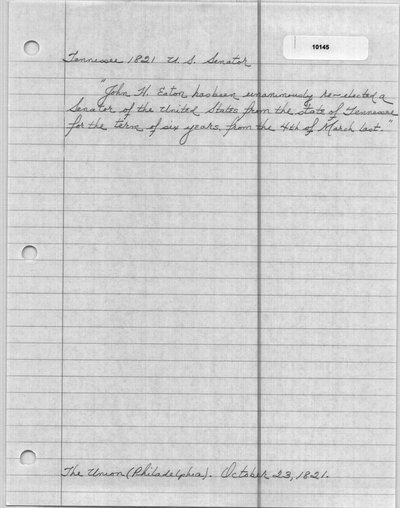 10145
Tennessee 1821 U. S. Senator
"John H. Eaton has been unanimously re-elected a
Senator of the United States from the state of Tennessee
for the term of six years, from the 4th of March last."
The Union (Philadelphia). October 23, 1821.